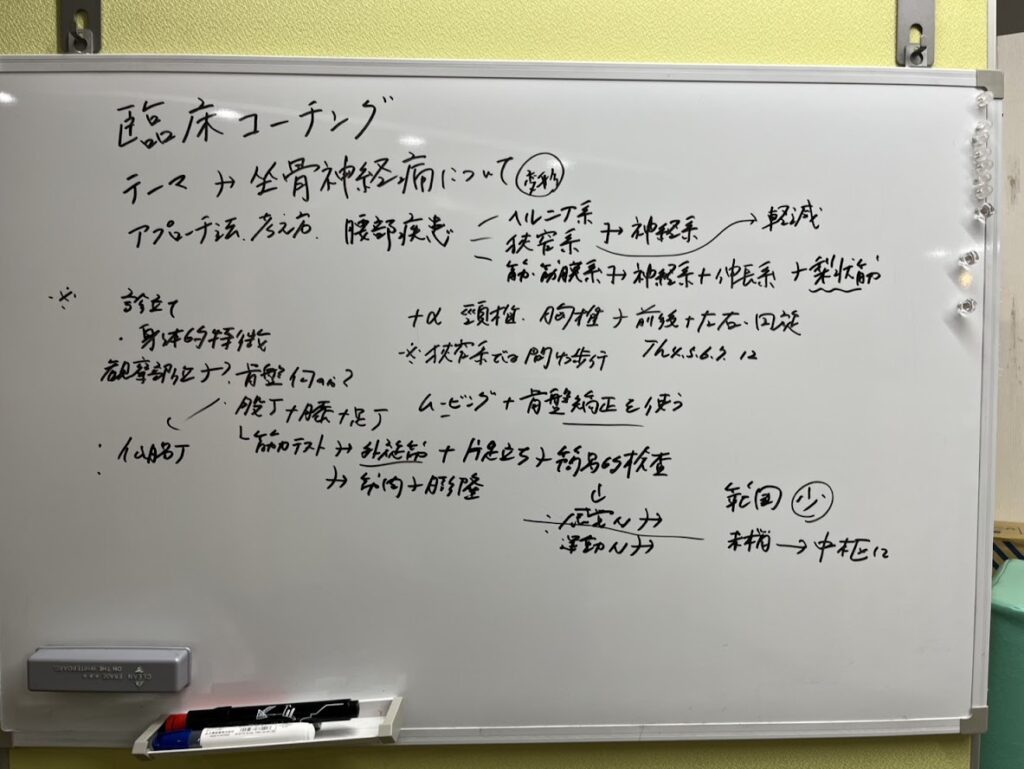 臨床コーチング
テーマ → 坐骨神経痛について
アプローチ法、考え方、腰部疾患
ヘルニア系
狭窄系 → 神経系 → 軽減
筋・筋膜系 → 神経系 + 伸長系 + 梨状筋
※ 診立て
・身体的特徴
+α 頸椎、胸椎 + 前後 + 左右・回旋
※狭窄系では間欠歩行 Th4.5.6.7. 12
観察部位 → ・骨盤
・股丁+膝+足丁
ムービング + 骨盤矯正を使う
: 仙腸丁
筋力テスト → 外旋筋 + 片足立ち +
→ 筋肉 + 膨隆
運動N →
範囲 少
末梢 → 中枢に
CLEAN ERASER
ON THE WHITEBOARD